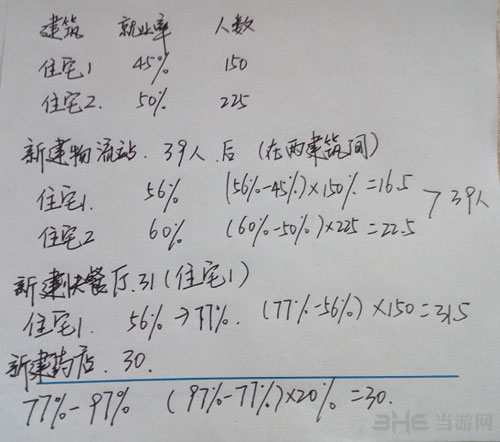 建筑 就业率 人数
住宅1 45% 150
住宅2. 50% 225
新建物流站. 39人. 后 (在两建筑间)
住宅1. 56% (56%-45%)×150%=16.5
>39人
住宅2 60% (60%-50%)×225=22.5
新建快餐厅.31(住宅1)
住宅1. 56%→77%. (77%-56%)×150=31.5
新建药店. 30.
77%-97% (97%-77%)×20%=30.
3HE 当游网